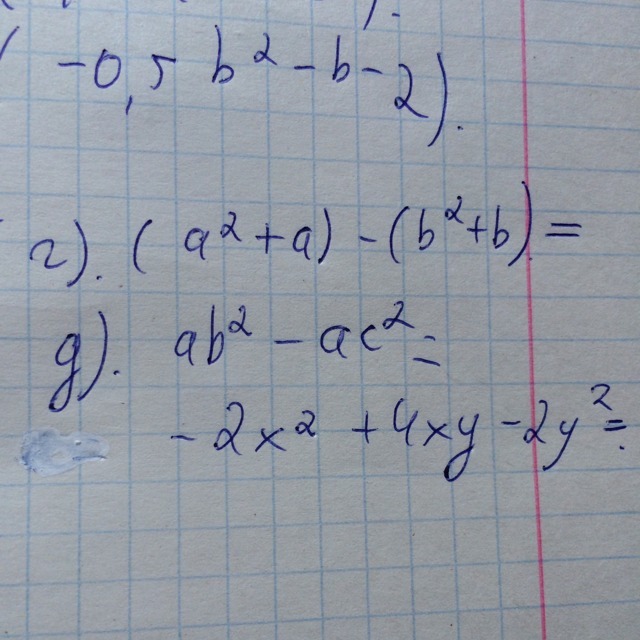 -0,5 b² - b - 2).
г). (a² + a) - (b² + b) =
д). ab² - ac² =
- 2x² + 4xy - 2y² =